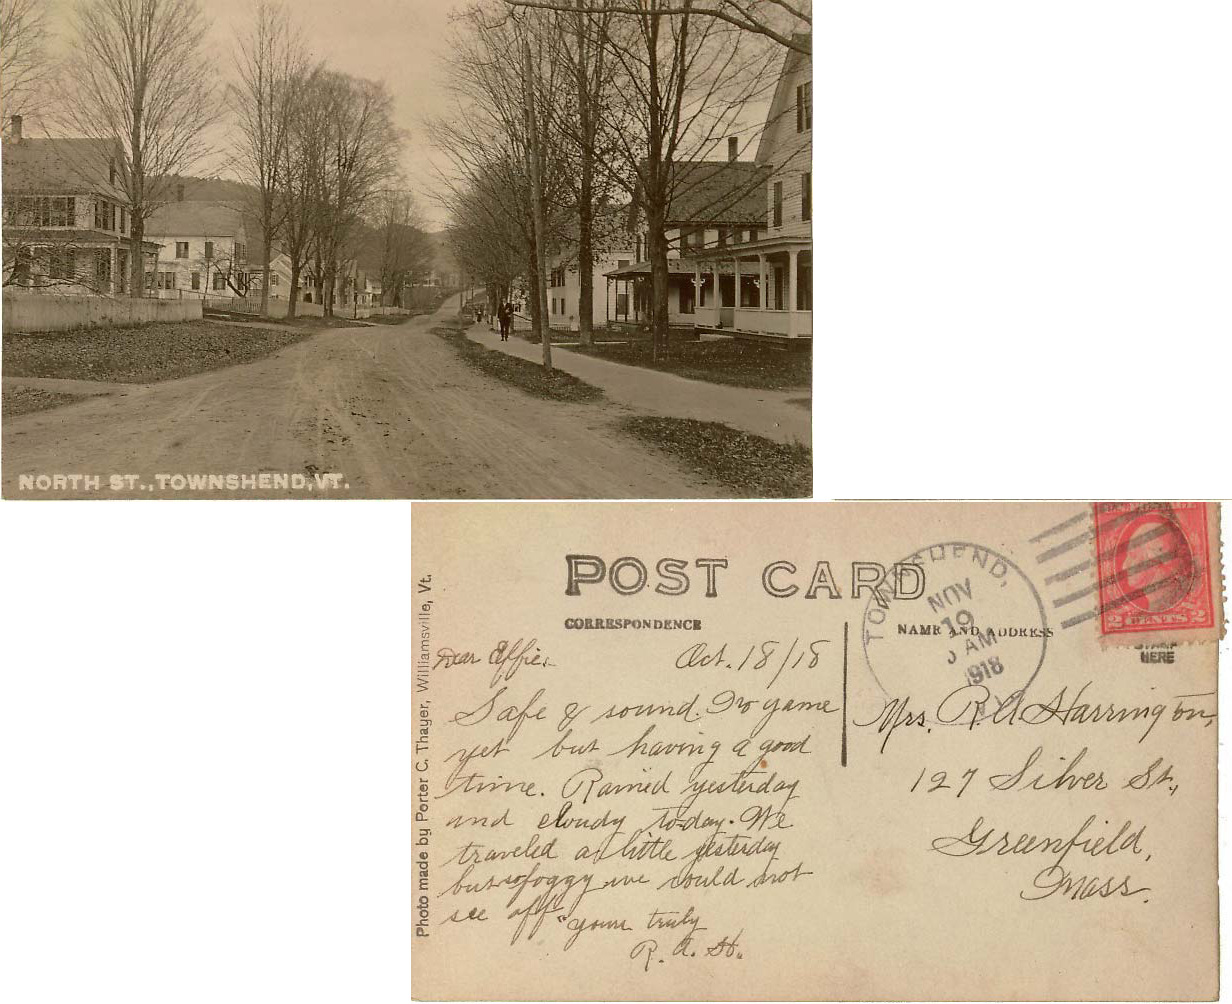 NORTH ST., TOWNSHEND, VT.
POST CARD
CORRESPONDENCE
NAME AND ADDRESS
Photo made by Porter C. Thayer, Williamsville, Vt.
TOWNSHEND,
NOV
19
AM
1918
2 CENTS 2
STAMP
HERE
Dear Effie,
Oct. 18/18
Safe & sound. No game
yet but having a good
time. Rained yesterday
and cloudy to-day. We
traveled a little yesterday
but so foggy we could not
see off
yours truly
R. A. H.
Mrs. R. A Harrington,
127 Silver St.,
Greenfield,
Mass.